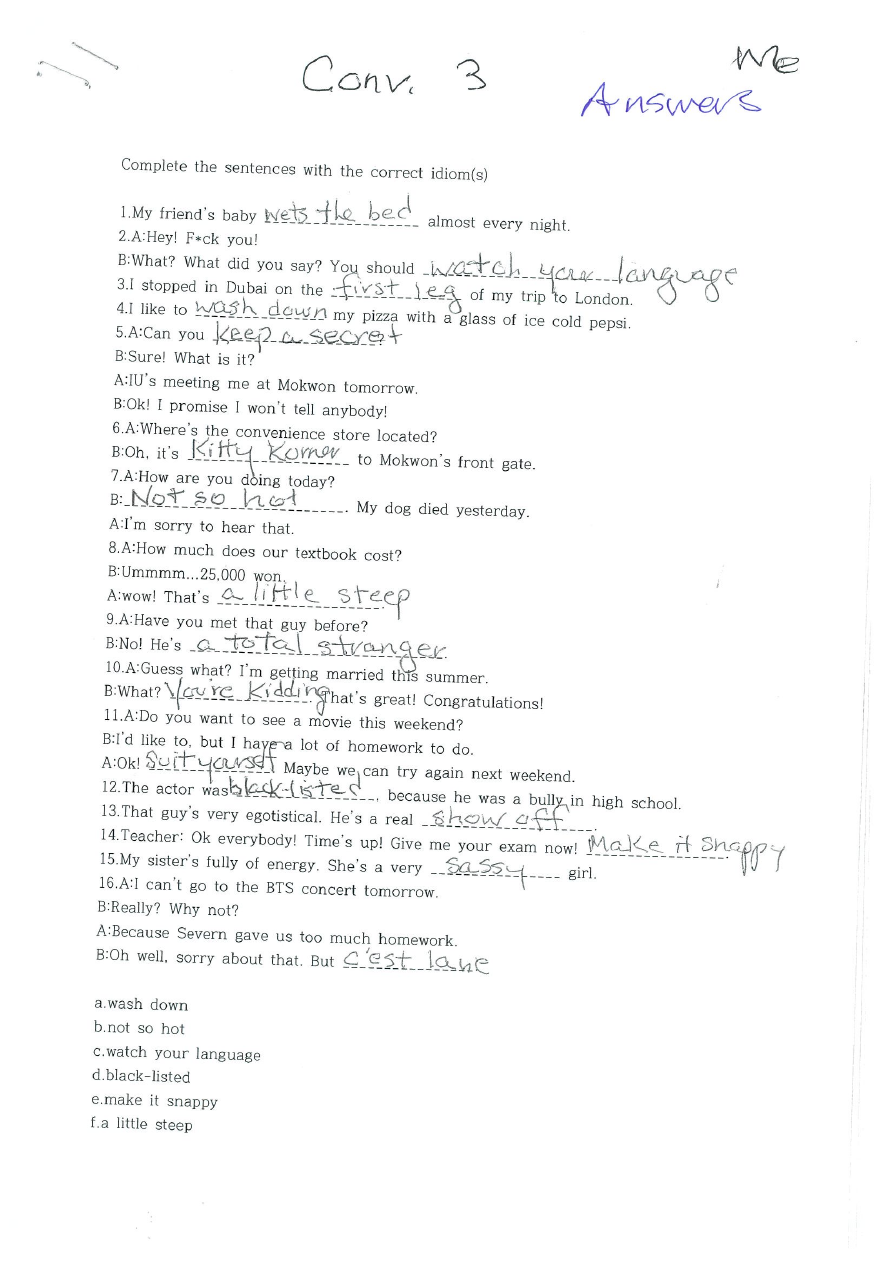 Conv. 3
Me
Answers
Complete the sentences with the correct idiom(s)
1.My friend's baby wets the bed almost every night.
2.A:Hey! F*ck you!
B:What? What did you say? You should watch your language
3.I stopped in Dubai on the first leg of my trip to London.
4.I like to wash down my pizza with a glass of ice cold pepsi.
5.A:Can you keep a secret
B:Sure! What is it?
A:IU's meeting me at Mokwon tomorrow.
B:Ok! I promise I won't tell anybody!
6.A:Where's the convenience store located?
B:Oh, it's Kitty Korner to Mokwon's front gate.
7.A:How are you doing today?
B: Not so hot. My dog died yesterday.
A:I'm sorry to hear that.
8.A:How much does our textbook cost?
B:Ummmm...25,000 won.
A:wow! That's a little steep
9.A:Have you met that guy before?
B:No! He's a total stranger
10.A:Guess what? I'm getting married this summer.
B:What? You're Kidding That's great! Congratulations!
11.A:Do you want to see a movie this weekend?
B:I'd like to, but I have a lot of homework to do.
A:Ok! Suit yourself Maybe we can try again next weekend.
12.The actor was black-listed, because he was a bully in high school.
13.That guy's very egotistical. He's a real show off.
14.Teacher: Ok everybody! Time's up! Give me your exam now! Make it snappy
15.My sister's fully of energy. She's a very sassy girl.
16.A:I can't go to the BTS concert tomorrow.
B:Really? Why not?
A:Because Severn gave us too much homework.
B:Oh well, sorry about that. But c'est
a.wash down
b.not so hot
c.watch your language
d.black-listed
e.make it snappy
f.a little steep